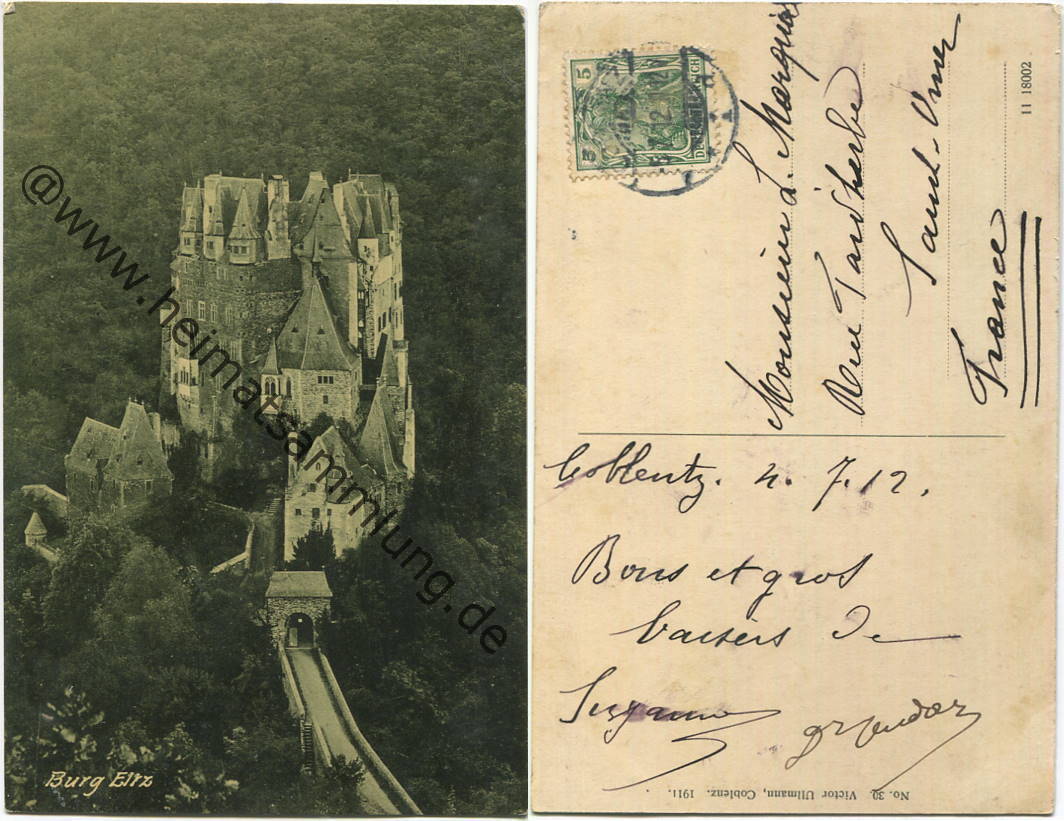 @www.heimatsammlung.de
Burg Eltz
5 5
DEUTSCHES REICH
Monsieur L. Marquis
Rue
Saint-Omer
France
11 18002
Coblentz. 4. 7. 12.
Bons et gros
baisers de
Suzanne
No. 39. Victor Ullmann, Coblenz. 1911.